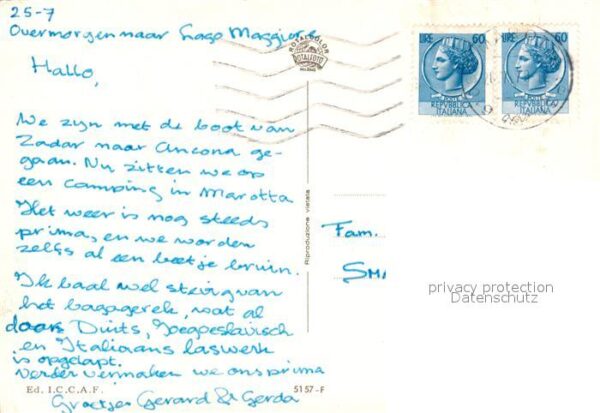 25-7
Overmorgen naar Lago Maggiore
Hallo,
We zijn met de boot van
Zadar naar Ancona ge-
gaan. Nu zitten we op
een camping in Marotta
Het weer is nog steeds
prima, en we worden
zelfs al een beetje bruin.
Ik baal wel stevig van
het bagagerek, wat al
door Duits, Joegoslavisch
en Italiaans laswerk
is opgelapt.
Verder vermaken we ons prima
Groetjes Gerard & Gerda
Ed. I.C.C.A.F.
5157-F
Riproduzione vietata
ROTALCOLOR
ROTALFOTO
MILANO
LIRE 60
REPVBBLICA
ITALIANA
LIRE 60
REPVBBLICA
ITALIANA
Fam.
SMA
privacy protection
Datenschutz